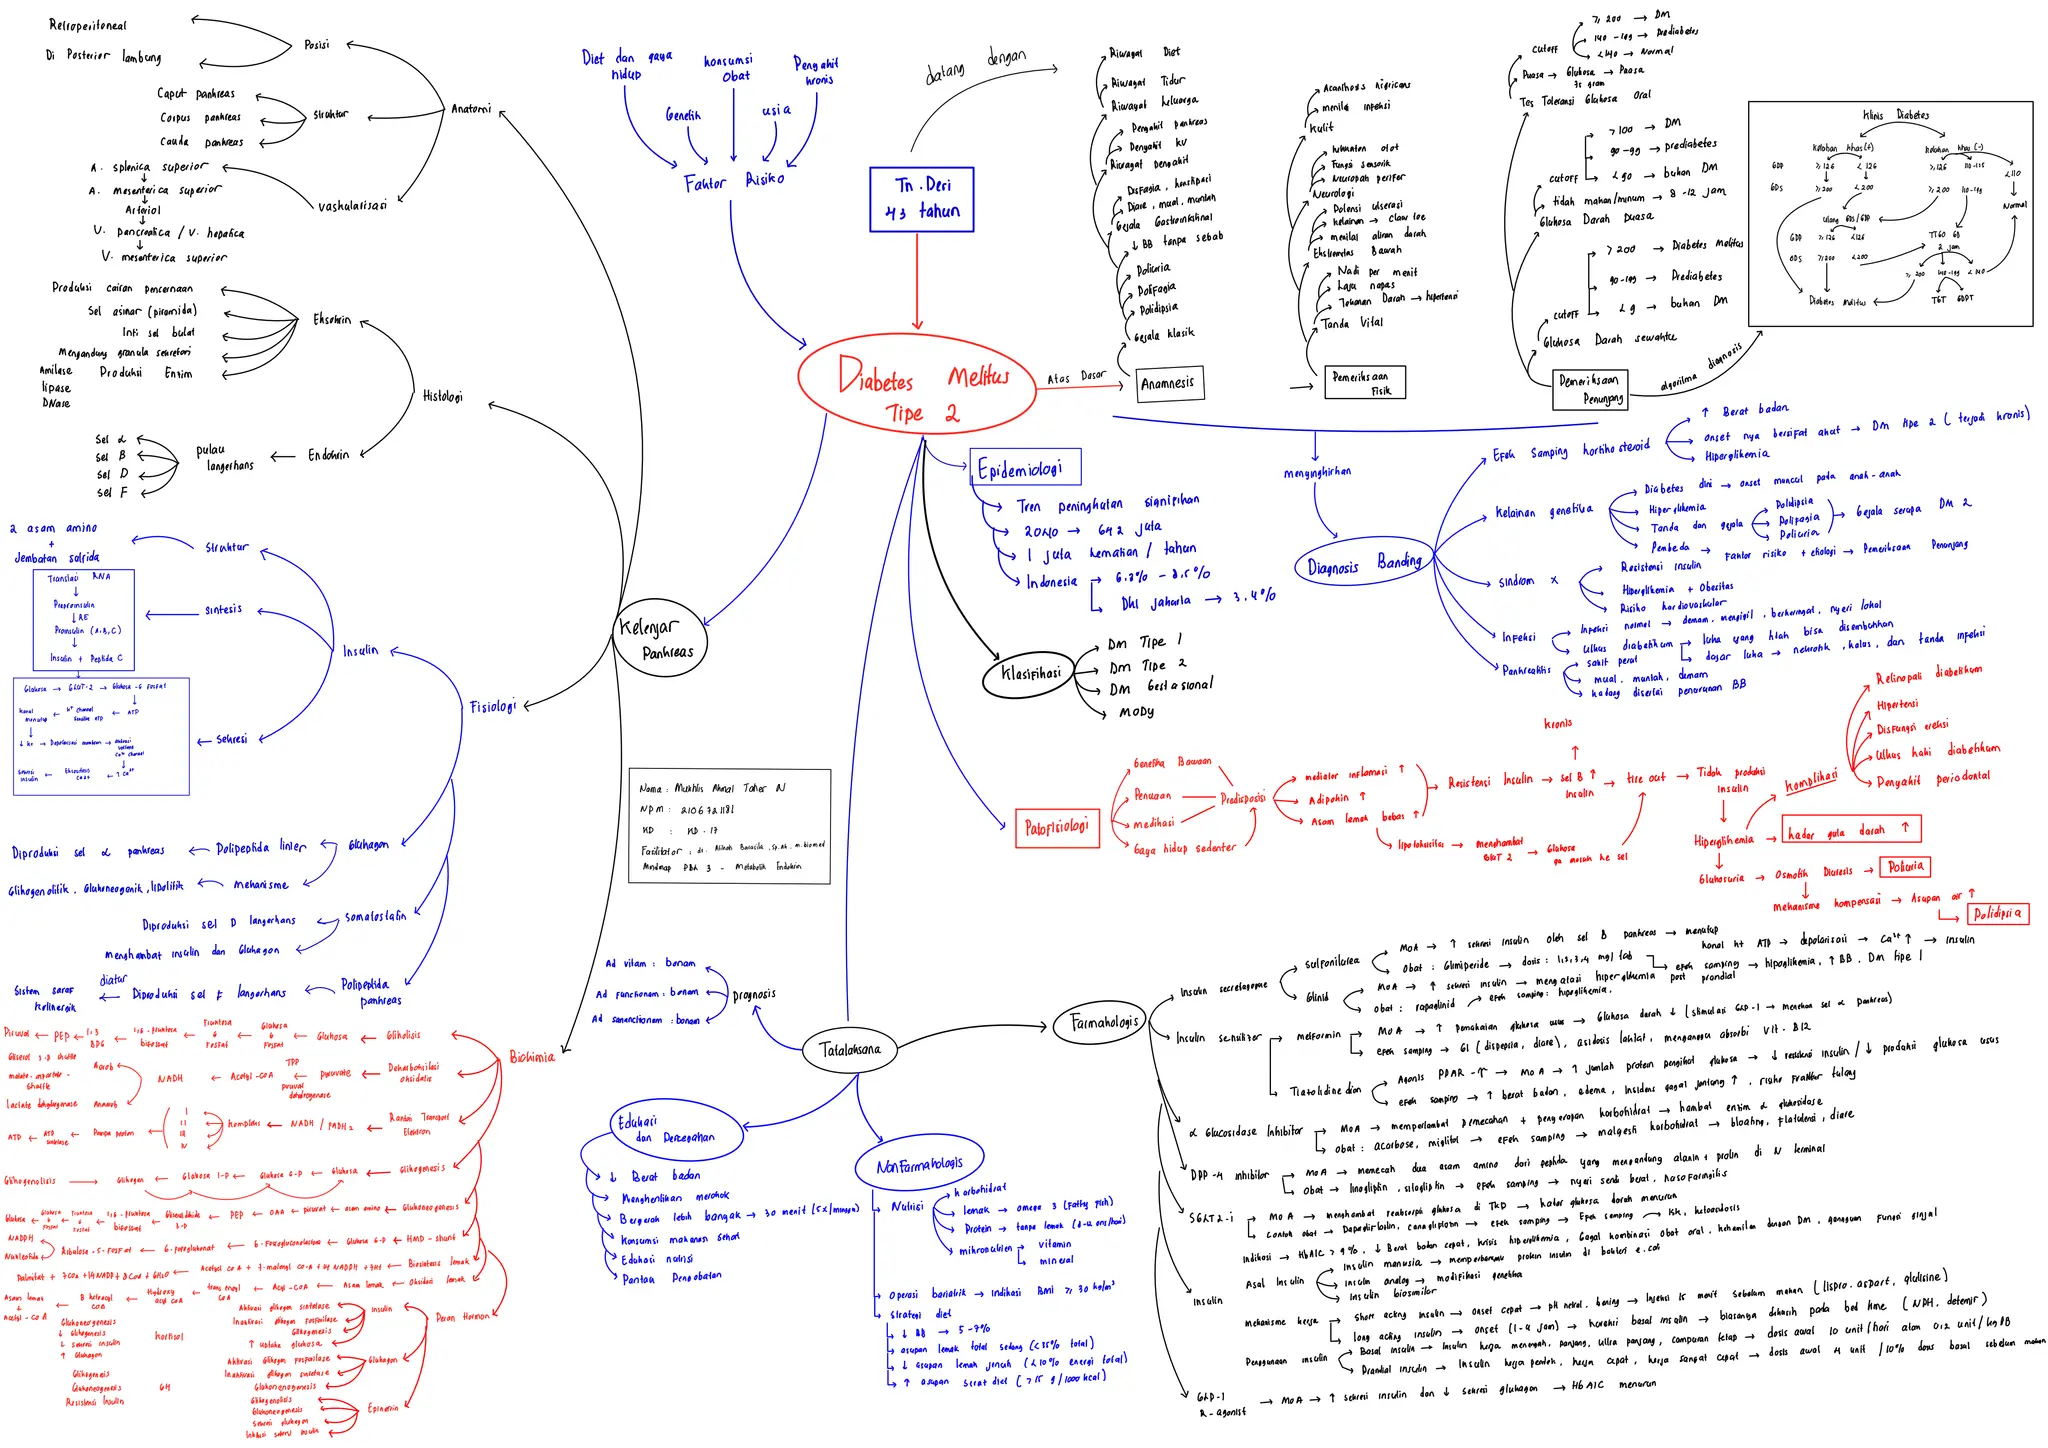 Retroperitoneal
Di Posterior lambung
Posisi
Caput pankreas
Corpus pankreas
Cauda pankreas
Struktur
Anatomi
A. splenica superior
A. mesenterica superior
Arteriol
V. pancreatica / V. hepatica
V. mesenterica superior
vaskularisasi
Produksi cairan pencernaan
Sel asinar (piramida)
Inti sel bulat
Mengandung granula sekretori
Produksi Enzim
Amilase
lipase
DNase
Eksokrin
Histologi
Sel α
Sel B
Sel D
Sel F
pulau
langerhans
Endokrin
2 asam amino
+
Jembatan sulfida
Struktur
Translasi RNA
Preproinsulin
RE
Proinsulin (A, B, C)
Insulin + Peptida C
sintesis
Insulin
Glukosa → GLUT-2 → Glukosa-6 fosfat
ATP
↑ Ca²⁺
Sekresi
Fisiologi
Diproduksi sel α pankreas ← Polipeptida linier
Glukagon
Glikogenolitik, Glukoneogenik, lipolitik ← mekanisme
Diproduksi sel D langerhans
somatostatin
menghambat insulin dan Glukagon
Sistem saraf
kolinergik
diatur
Diproduksi sel F langerhans
Polipeptida
pankreas
Kelenjar
Pankreas
Diet dan gaya
hidup
konsumsi
obat
Penyakit
kronis
Genetik
usia
Faktor Risiko
datang dengan
Tn. Deri
43 tahun
Diabetes Melitus
Tipe 2
Atas Dasar
Riwayat Diet
Riwayat Tidur
Riwayat keluarga
Penyakit pankreas
Penyakit KV
Riwayat penyakit
Disfagia, konstipasi
Diare, mual, muntah
Gejala Gastrointestinal
↓ BB tanpa sebab
Poliuria
Polifagia
Polidipsia
Gejala klasik
Anamnesis
Acanthosis nigricans
menilai infeksi
Kulit
kekuatan otot
Fungsi sensorik
Neuropati perifer
Neurologi
Potensi ulserasi
kelainan → claw toe
menilai aliran darah
Ekstremitas Bawah
Nadi per menit
Laju napas
Tekanan Darah → hipertensi
Tanda Vital
Pemeriksaan
Fisik
cutoff
≥ 200 → DM
140 - 199 → Prediabetes
<140 → Normal
Puasa → Glukosa → Puasa
75 gram
Tes Toleransi Glukosa Oral
>100 → DM
90-99 → prediabetes
<90 → bukan DM
cutoff
tidak makan/minum → 8-12 jam
Glukosa Darah Puasa
>200 → Diabetes Melitus
90-199 → Prediabetes
<9 → bukan DM
cutoff
Glukosa Darah sewaktu
Pemeriksaan
Penunjang
algoritma diagnosis
Klinis Diabetes
Keluhan khas (+)
Keluhan khas (-)
GDP ≥126 <126 ≥126 110-125 <110
GDS ≥200 <200 ≥200 110-199
Normal
ulang GDS/GDP
GDP ≥126 <126
GDS ≥200 <200
TTGO GD
2 jam
≥200 140-199 <140
Diabetes Melitus
TGT GDPT
Epidemiologi
Tren peningkatan signifikan
2040 → 642 juta
1 juta kematian / tahun
Indonesia → 6.2% - 8.5%
DKI Jakarta → 3.4%
Klasifikasi
Dm Tipe 1
Dm Tipe 2
DM Gestasional
MODY
menyingkirkan
Diagnosis Banding
Efek Samping kortikosteroid
↑ Berat badan
onset nya bersifat akut → DM tipe 2 (terjadi kronis)
Hiperglikemia
Kelainan genetika
Diabetes dini → onset muncul pada anak-anak
Hiperglikemia
Tanda dan gejala
Polidipsia
Polifagia
Poliuria
Gejala serupa DM 2
Pembeda → Faktor risiko + etiologi → Pemeriksaan Penunjang
Sindrom X
Resistensi insulin
Hiperglikemia + Obesitas
Risiko kardiovaskular
Infeksi
Infeksi normal → demam, menggigil, berkeringat, nyeri lokal
ulkus diabetikum
luka yang tidak bisa disembuhkan
dasar luka → nekrotik, kalus, dan tanda infeksi
Pankreatitis
sakit perut
mual, muntah, demam
kadang disertai penurunan BB
Patofisiologi
Genetika Bawaan
Penuaan
medikasi
Gaya hidup sedenter
Predisposisi
mediator inflamasi ↑
Adipokin ↑
Asam lemak bebas ↑
lipotoksisitas → menghambat
GLUT 2
Glukosa
ga masuk ke sel
Resistensi Insulin → Sel B ↑
Insulin
kronis
tire out → Tidak produksi
Insulin
Hiperglikemia → kadar gula darah ↑
komplikasi
Retinopati diabetikum
Hipertensi
Disfungsi ereksi
Ulkus kaki diabetikum
Penyakit periodontal
Glukosuria → Osmotik Diuresis → Poliuria
Mekanisme kompensasi → Asupan air ↑
Polidipsia
Nama : Mukhlis Akmal Taher N
NPM : 2106721181
KD : KD-17
Mindmap PBA 3 - Metabolik Endokrin
Ad vitam : bonam
Ad Functionam : bonam
Ad sanactionam : bonam
Prognosis
Tatalaksana
Edukasi
dan Pencegahan
↓ Berat badan
Menghentikan merokok
Bergerak lebih banyak → 30 menit (5x/minggu)
Konsumsi makanan sehat
Edukasi nutrisi
Pantau Pengobatan
NonFarmakologis
Nutrisi
karbohidrat
lemak → omega 3 (fatty fish)
Protein → tanpa lemak
mikronutrien
vitamin
mineral
operasi bariatrik → Indikasi BMI ≥ 30 kg/m²
Strategi diet
↓ BB → 5-7%
asupan lemak total sedang (<35% total)
↓ asupan lemak jenuh (<10% energi total)
↑ asupan serat diet (>15 g/1000 kcal)
Farmakologis
Insulin secretagogue
Sulfonilurea
MoA → ↑ sekresi insulin oleh sel B pankreas → menutup
kanal k+ ATP → depolarisasi → Ca²⁺ ↑ → insulin
Obat : Glimiperide → dosis : 1,2,3,4 mg/tab
efek samping → hipoglikemia, ↑BB, Dm tipe 1
Glinid
MoA → ↑ sekresi insulin → mengatasi hiperglikemia post prandial
obat : repaglinid
efek samping : hipoglikemia.
Insulin sensitizer
metformin
MoA → ↑ pemakaian glukosa usus → Glukosa darah ↓ (stimulasi GLP-1 → menekan sel α pankreas)
efek samping → GI (dispepsia, diare), asidosis laktat, mengganggu absorbsi Vit. B12
Tiazolidinedion
Agonis PPAR-γ → MoA → ↑ jumlah protein pengikat glukosa → ↓ resistensi insulin / ↓ produksi glukosa usus
efek samping → ↑ berat badan, edema, insidens gagal jantung ↑, risiko fraktur tulang
α Glucosidase Inhibitor
MoA → memperlambat pemecahan + penyerapan karbohidrat → hambat enzim α glukosidase
Obat : Acarbose, miglitol → efek samping → malgesti karbohidrat → bloating, flatulensi, diare
DPP-4 inhibitor
MoA → memecah dua asam amino dari peptida yang mengandung alanin + prolin di N terminal
Obat → linagliptin, sitagliptin → efek samping → nyeri sendi berat, nasofaringitis
SGLT2-i
MoA → menghambat reabsorpsi glukosa di TKD → kadar glukosa darah menurun
Contoh obat → Dapagliflozin, canagliflozin → efek samping → ISK, ketoasidosis
Insulin
Indikasi → HbA1C > 9%, ↓ Berat badan cepat, krisis hiperglikemia, Gagal kombinasi obat oral, kehamilan dengan DM, gangguan Fungsi ginjal
Asal Insulin
Insulin manusia → memperbanyak protein insulin di bakteri e. coli
Insulin analog → modifikasi genetika
Insulin biosimilar
mekanisme kerja
Short acting insulin → onset cepat → pH netral, bening → Injeksi 15 menit sebelum makan (lispro, aspart, glulisine)
long acting insulin → onset (1-4 jam) → koreksi basal insulin → biasanya dikasih pada bed time (NPH, detemir)
Penggunaan insulin
Basal insulin → insulin kerja menengah, panjang, ultra panjang, campuran tetap → dosis awal 10 unit/hari atau 0,2 unit/kgBB
Prandial insulin → Insulin kerja pendek, kerja cepat, kerja sangat cepat → dosis awal 4 unit / 10% dosis basal sebelum makan
GLP-1
R-agonist
MoA → ↑ sekresi insulin dan ↓ sekresi glukagon → HbA1C menurun
Biokimia
Piruvat ← PEP ← 1,3
BPG
1,6-fruktosa
bifosfat
Fruktosa
6
Fosfat
Glukosa
6
Fosfat
Glukosa ← Glikolisis
NADH ← Acetyl-CoA ← pyruvate ← Dekarboksilasi
oksidatif
TPP
piruvat
dehidrogenase
Gliserol 3-P shuffle
malate-aspartate-
shuffle
Aerob
Lactate dehydrogenase Anaerob
ATP ← ATP
sintase
Pompa proton
I
II
III
IV
kompleks ← NADH / FADH2 ← Rantai Transport
Elektron
Glikogenolisis → Glikogen ← Glukosa 1-P ← Glukosa 6-P ← Glukosa ← Glikogenesis
PEP ← OAA ← piruvat ← asam amino ← Glukoneogenesis
NADPH
Nukleotida
Ribulosa-5-Fosfat ← 6-fosfoglukonat ← 6-Fosfogluconolactone ← Glukosa 6-P ← HMP-shunt
Biosintesis lemak
Acyl-CoA ← Asam lemak ← Oksidasi lemak
Peran Hormon
Insulin
Aktivasi glikogen sintetase
Inaktivasi glikogen fosforilase
Glikogenesis
↑ uptake glukosa
Glukagon
Aktivasi Glikogen fosforilase
Inaktivasi glikogen sintetase
Glukoneogenesis
Epinefrin
Glikogenolisis
Glukoneogenesis
Sekresi glukagon
Inhibisi sekresi insulin
kortisol
Glukoneogenesis
↓ Glikogenesis
↓ sekresi insulin
↑ Glukagon
GH
Glikogenesis
Glukoneogenesis
Resistensi Insulin